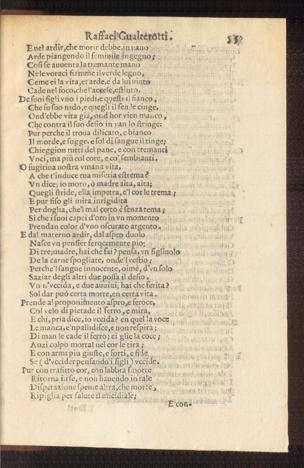 Raffael Gualterotti.
E nel ardir, che morir debbe, in vano
Arde piangendo il feminile ingegno;
Così se auuenta la tremante mano
Ne le voraci fiamme il verde legno,
Come ei la vita, et arde, e da lui vinto
Cade nel foco, che l'accese, estinto.
De suoi figli vno i piedi e questi il fianco,
Che in suo nudo, e quegli il sen le cinge,
Ond'ebbe vita già, ond'hor vien manco,
Che contra il suo desio in van lo stringe:
Pur perche il troua dilicato, e bianco
Il morde, e sugge, e sol di sangue il tinge;
Chieggion tutti del pane, e con tremanti
Voci, ma più col core, e co' sembianti.
O fugitiua nostra vmana vita,
A che t'induce tua miseria estrema?
Vn dice; io moro, ò madre aita, aita;
Quegli stride, ella impetra, e'l cor le trema;
E pur fiso gli mira irrigidita
Per doglia, che'l mal certo è senza tema;
Si che i suoi capei d'oro in vn momento
Prendan color d'vno oscurato argento.
E dal materno ardir, dal aspro duolo
Nasce vn pensier ferocemente pio;
Di tre, madre, hai che fai? pensa, vn figliuolo
De la carne spogliare, onde'l vestio;
Perche'l sangue innocente, oimè, d'vn solo
Saziar degli altri due possa il desio.
Vn n'vccida, e due auuiui; hai che ferita?
Sol dar può certa morte, en certa vita.
Prende al proponimento aspro, e feroce,
Col velo di pietade il ferro, e mira,
E chi, pria dice, io vccida? en quel la voce
Le manca, e'npallidisce, e non respira;
Di man le cade il ferro; ei gli è la coce;
Anzi colpo mortal nel cor le tira;
E con armi più giuste, e forti, e fide
Se (d'vccider pensando i figli) vccide.
Pur con trafitto cor, con labbra smorte
Ritorna in se, e non hauendo in tale
Disperazione speme altra, che morte,
Ripiglia per salute il micidiale;
E con-